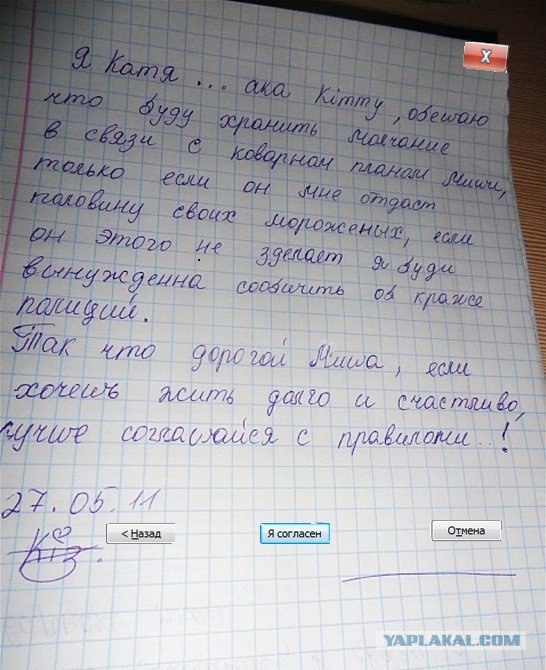 X
Я Катя ... ака Kitty, обешаю
что буду хранить молчание
в связи с коварном планом Миши,
только если он мне отдаст
половину своих мороженых, если
он этого не зделает я буди
вынужденна сообичить об краже
полиций.
Так что дорогой Миша, если
хочешь жить долго и счастливо,
лучше соглашайся с правилами...!
27.05.11
< Назад
Я согласен
Отмена
YAPLAKAL.COM